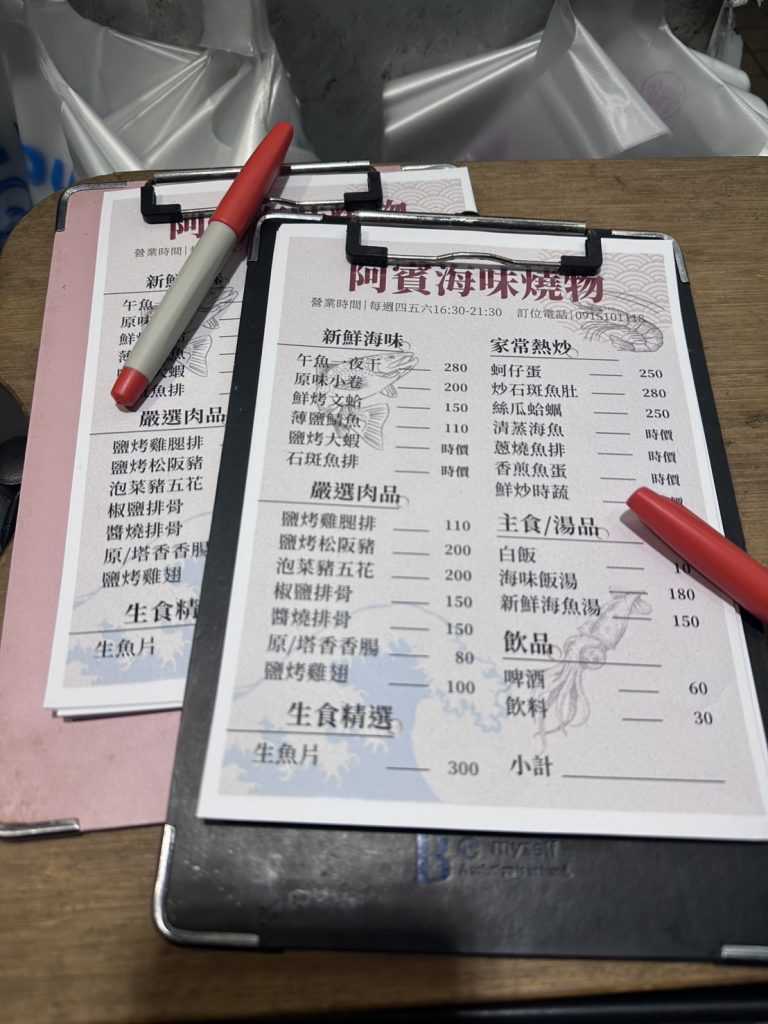 阿賓海味燒物
營業時間|每週四五六16:30-21:30 訂位電話|0915101118
新鮮海味
午魚一夜干 280
原味小卷 200
鮮烤文蛤 150
薄鹽鯖魚 110
鹽烤大蝦 時價
石斑魚排 時價
嚴選肉品
鹽烤雞腿排 110
鹽烤松阪豬 200
泡菜豬五花 200
椒鹽排骨 150
醬燒排骨 150
原/塔香香腸 80
鹽烤雞翅 100
生食精選
生魚片 300
家常熱炒
蚵仔蛋 250
炒石斑魚肚 280
絲瓜蛤蠣 250
清蒸海魚 時價
蔥燒魚排 時價
香煎魚蛋 時價
鮮炒時蔬
主食/湯品
白飯 10
海味飯湯 180
新鮮海魚湯 150
飲品
啤酒 60
飲料 30
小計
Be myself
阿
營業時間|
新鮮
午魚一
原味
魚排
嚴選肉品
鹽烤雞腿排
鹽烤松阪豬
泡菜豬五花
椒鹽排骨
醬燒排骨
原/塔香香腸
鹽烤雞翅
生食精
生魚片